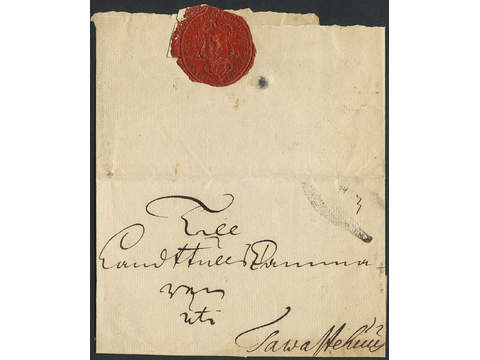 Till
Landtullskamma
ren
uti
Tawastehus